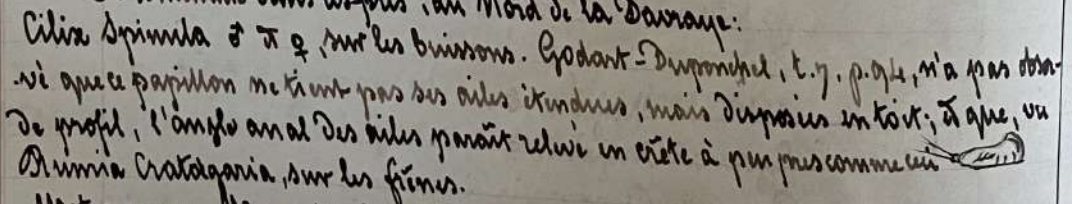 au Nord de la Davraye:
Cilix Spinula ♂ et ♀, sur les buissons. Godart-Duponchel, t. 7, p. 94, n'a pas obser-
vé que ce papillon ne tient pas ses ailes étendues, mais disposées en toit; et que, vu
de profil, l'angle anal des ailes paraît relevé en crête à peu près comme ceci
Rumia Cratægaria, sur les frênes.